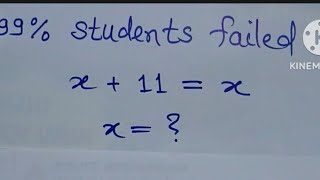 99% students failed
x + 11 = x
x = ?
KINEM